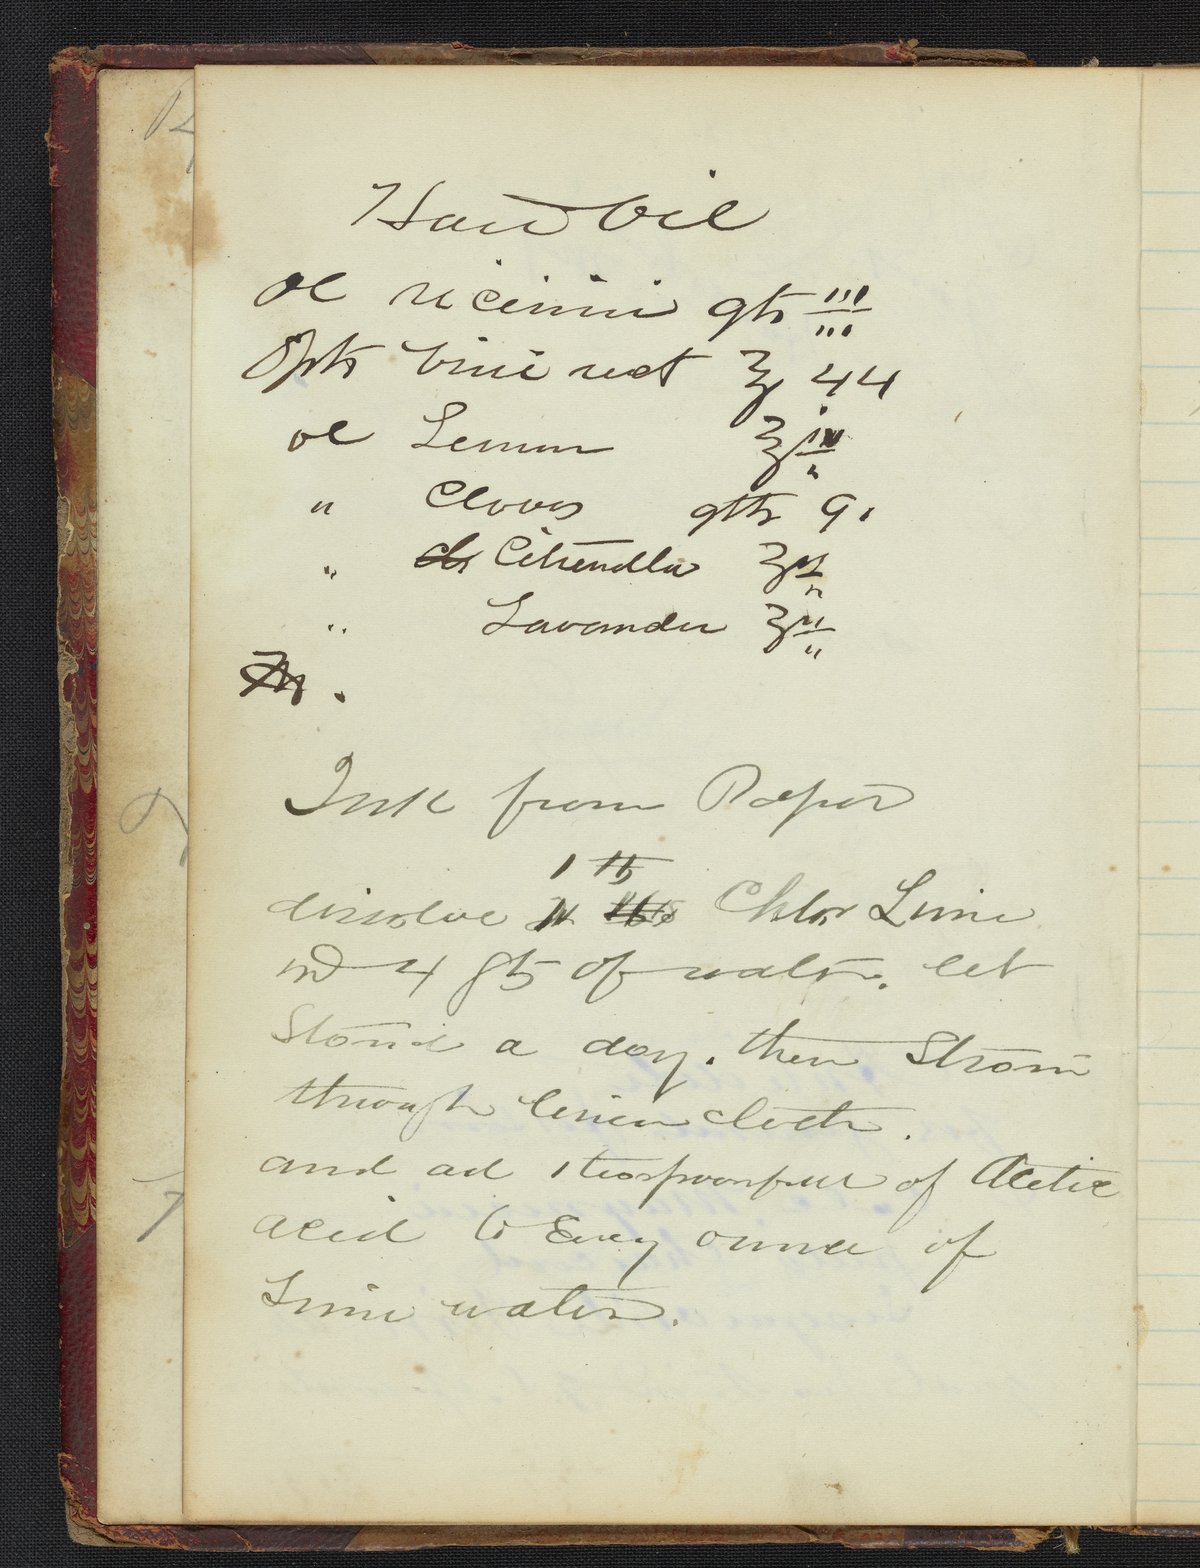 Hair Oil
Ol ricini qts iii
Spts vini rect ℥ 44
ol Lemon ℥ iii
" Cloves gtts 9.
" Citronella ℥ ii
" Lavander ℥ ii
Ink from Paper
1 ℔
dissolve Chlor Lime
in 4 qts of water. let
Stand a day. then Strain
through linen cloth.
and ad 1 teaspoonfull of Acetic
acid to Every ounce of
Lime water.